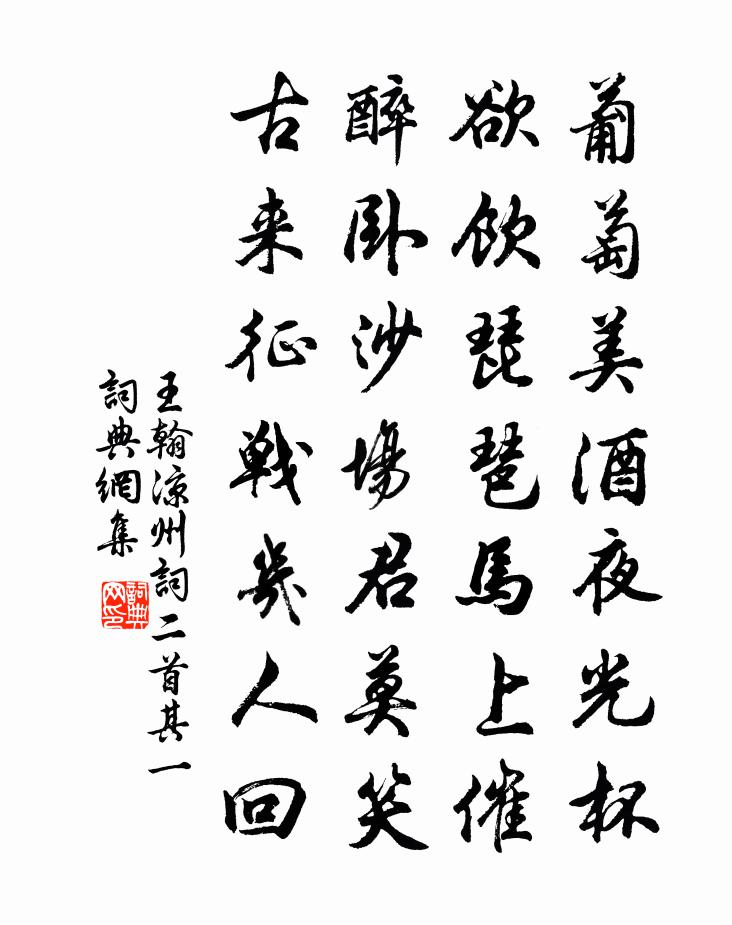 葡萄美酒夜光杯
欲飲琵琶馬上催
醉卧沙場君莫笑
古来征戰幾人回
王翰涼州詞二首其一
詞典網集
詞典网印